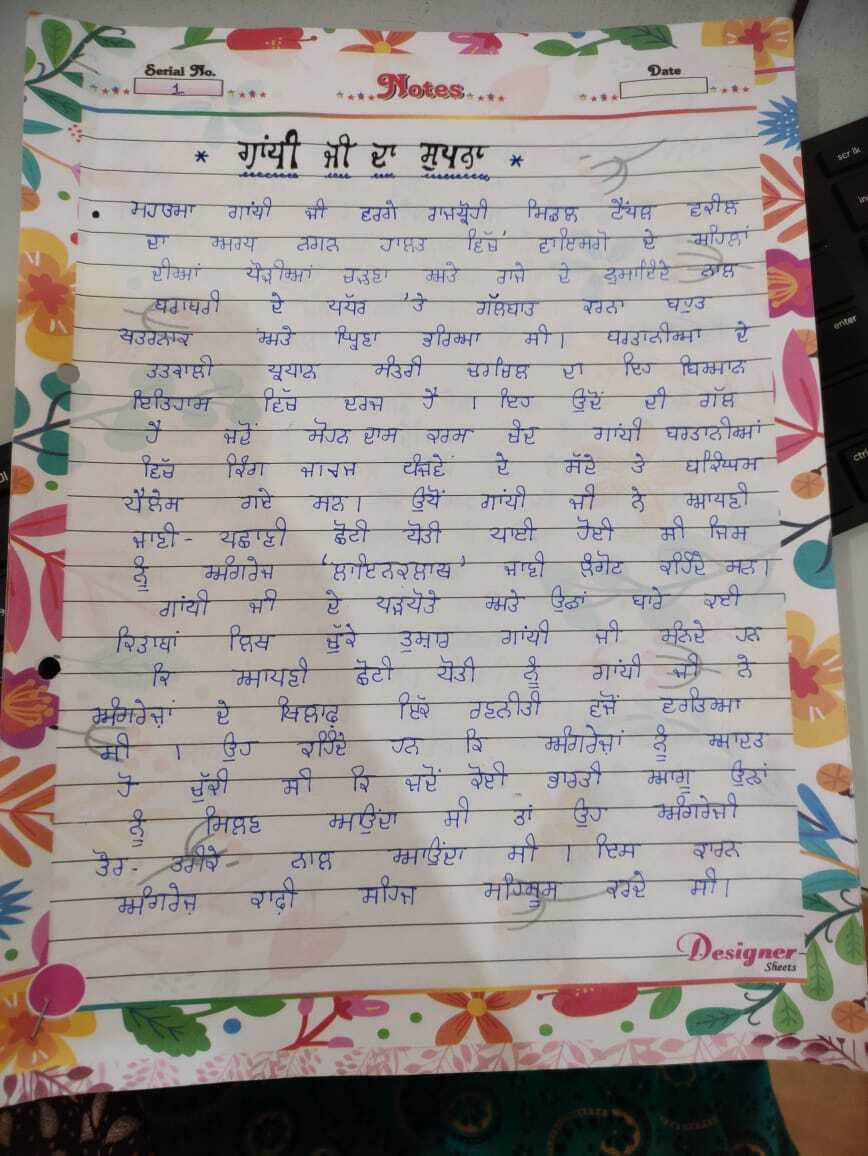 Serial No.
1.
Notes
Date
* ਗਾਂਧੀ ਜੀ ਦਾ ਸੁਪਨਾ *
• ਮਹਾਤਮਾ ਗਾਂਧੀ ਜੀ ਵਰਗੇ ਰਾਜਧ੍ਰੋਹੀ ਮਿਡਲ ਟੈਂਪਲ ਵਕੀਲ
ਦਾ ਅਰਧ ਨਗਨ ਹਾਲਤ ਵਿੱਚ ਵਾਇਸਰਾਏ ਦੇ ਮਹਿਲਾਂ
ਦੀਆਂ ਪੌੜੀਆਂ ਚੜ੍ਹਣਾ ਅਤੇ ਰਾਜੇ ਦੇ ਨੁਮਾਇੰਦੇ ਨਾਲ
ਬਰਾਬਰੀ ਦੇ ਪੱਧਰ 'ਤੇ ਗੱਲਬਾਤ ਕਰਨਾ ਬਹੁਤ
ਖਤਰਨਾਕ ਅਤੇ ਘ੍ਰਿਣਾ ਭਰਿਆ ਸੀ। ਬਰਤਾਨੀਆ ਦੇ
ਤਤਕਾਲੀ ਪ੍ਰਧਾਨ ਮੰਤਰੀ ਚਰਚਿਲ ਦਾ ਇਹ ਬਿਆਨ
ਇਤਿਹਾਸ ਵਿੱਚ ਦਰਜ ਹੈ । ਇਹ ਉਦੋਂ ਦੀ ਗੱਲ
ਹੈ ਜਦੋਂ ਮੋਹਨ ਦਾਸ ਕਰਮ ਚੰਦ ਗਾਂਧੀ ਬਰਤਾਨੀਆਂ
ਵਿੱਚ ਕਿੰਗ ਜਾਰਜ ਪੰਜਵੇਂ ਦੇ ਸੱਦੇ ਤੇ ਬਕਿੰਘਮ
ਪੈਲੇਸ ਗਏ ਸਨ। ਉਥੇ ਗਾਂਧੀ ਜੀ ਨੇ ਆਪਣੀ
ਜਾਣੀ - ਪਛਾਣੀ ਛੋਟੀ ਧੋਤੀ ਪਾਈ ਹੋਈ ਸੀ ਜਿਸ
ਨੂੰ ਅੰਗਰੇਜ 'ਲਾਇਨਕਲਾਥ' ਜਾਣੀ ਲੰਗੋਟ ਕਹਿੰਦੇ ਸਨ।
ਗਾਂਧੀ ਜੀ ਦੇ ਪੜਪੋਤੇ ਅਤੇ ਉਨ੍ਹਾਂ ਬਾਰੇ ਕਈ
ਕਿਤਾਬਾਂ ਲਿਖ ਚੁੱਕੇ ਤੁਸ਼ਾਰ ਗਾਂਧੀ ਜੀ ਮੰਨਦੇ ਹਨ
ਕਿ ਆਪਣੀ ਛੋਟੀ ਧੋਤੀ ਨੂੰ ਗਾਂਧੀ ਜੀ ਨੇ
ਅੰਗਰੇਜ਼ਾਂ ਦੇ ਖਿਲਾਫ਼ ਇੱਕ ਰਣਨੀਤੀ ਵਜੋਂ ਵਰਤਿਆ
ਸੀ । ਉਹ ਕਹਿੰਦੇ ਹਨ ਕਿ ਅੰਗਰੇਜ਼ਾਂ ਨੂੰ ਆਦਤ
ਹੋ ਚੁੱਕੀ ਸੀ ਕਿ ਜਦੋਂ ਕੋਈ ਭਾਰਤੀ ਆਗੂ ਉਨ੍ਹਾਂ
ਨੂੰ ਮਿਲਣ ਆਉਂਦਾ ਸੀ ਤਾਂ ਉਹ ਅੰਗਰੇਜ਼ੀ
ਤੌਰ - ਤਰੀਕੇ ਨਾਲ ਆਉਂਦਾ ਸੀ । ਇਸ ਕਾਰਨ
ਅੰਗਰੇਜ਼ ਕਾਫ਼ੀ ਸਹਿਜ ਮਹਿਸੂਸ ਕਰਦੇ ਸੀ।
Designer
Sheets